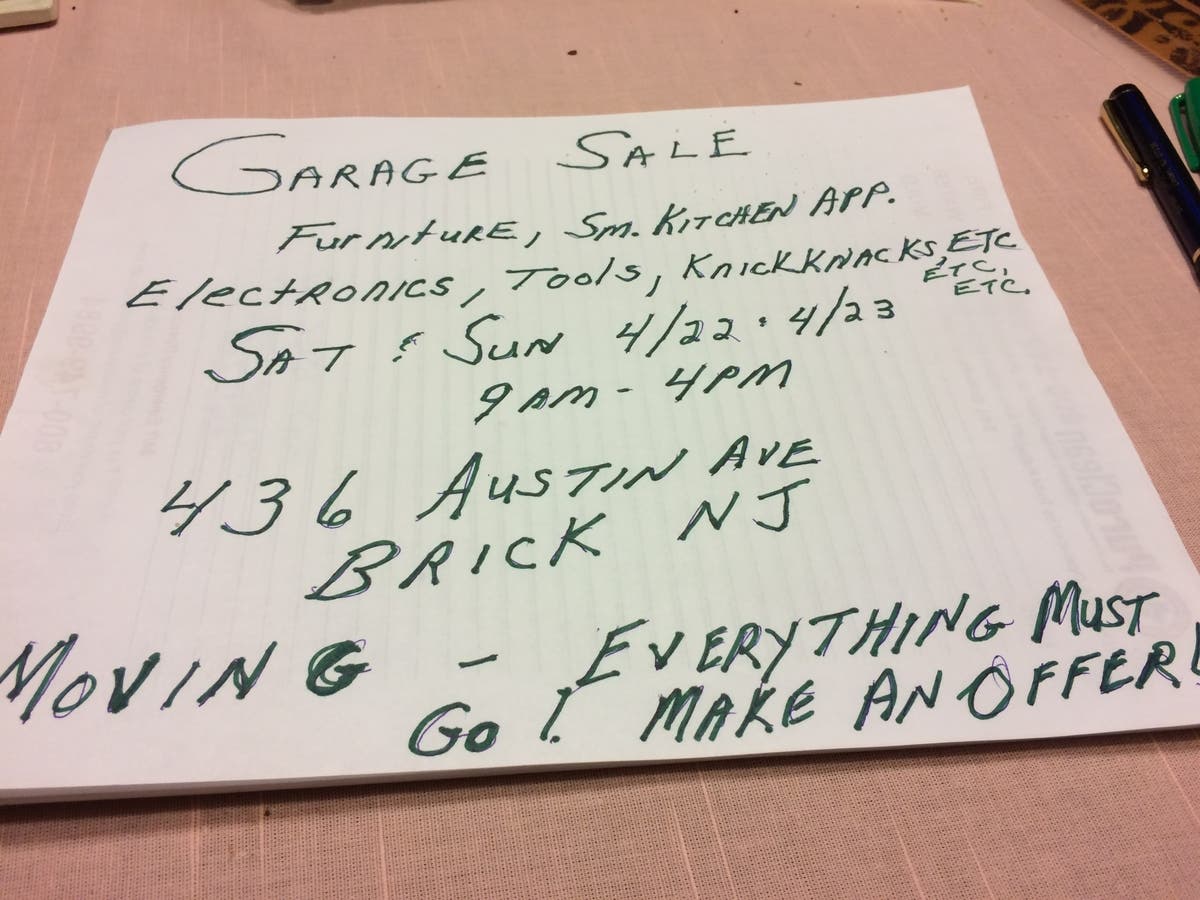 GARAGE SALE
FurnitURE, Sm. KITCHEN APP.
ElectRonics, Tools, KnickKNACKS, ETC
ETC,
ETC.
SAT & SUN 4/22 & 4/23
9AM - 4PM
436 AUSTIN AVE
BRICK NJ
MOVING - EVERYTHING MUST
GO! MAKE AN OFFER!